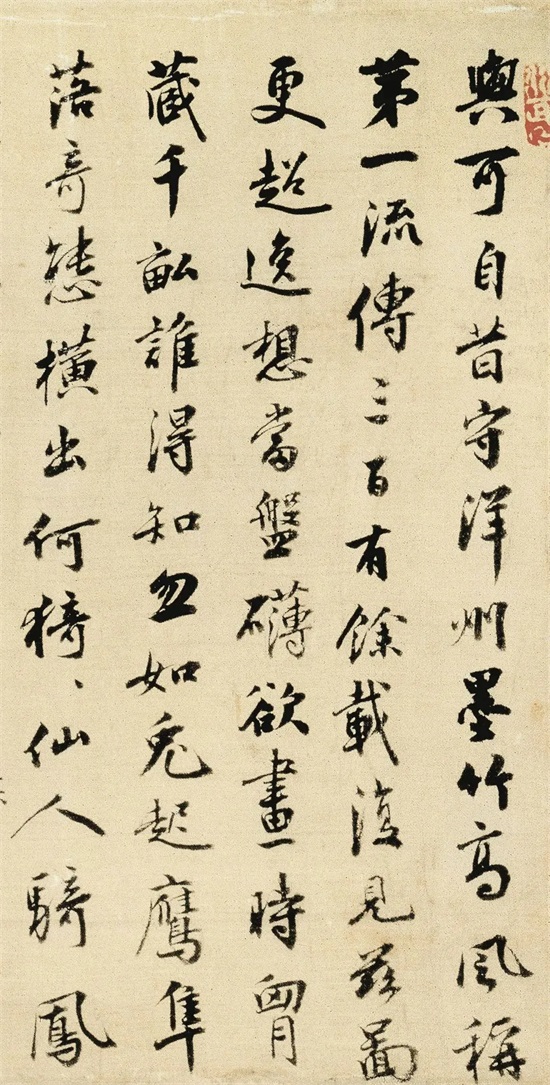 與可自昔守洋州墨竹高風稱
第一流傳三百有餘載復見茲圖
更超逸想當盤礴欲畫時胷
藏千畝誰得知忽如兔起鷹隼
落奇態橫出何猗〻仙人騎鳳